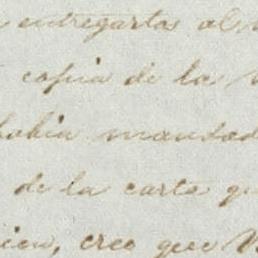 entregarta al
copia de la
habia mandad
de la carta q
ien, creo que V